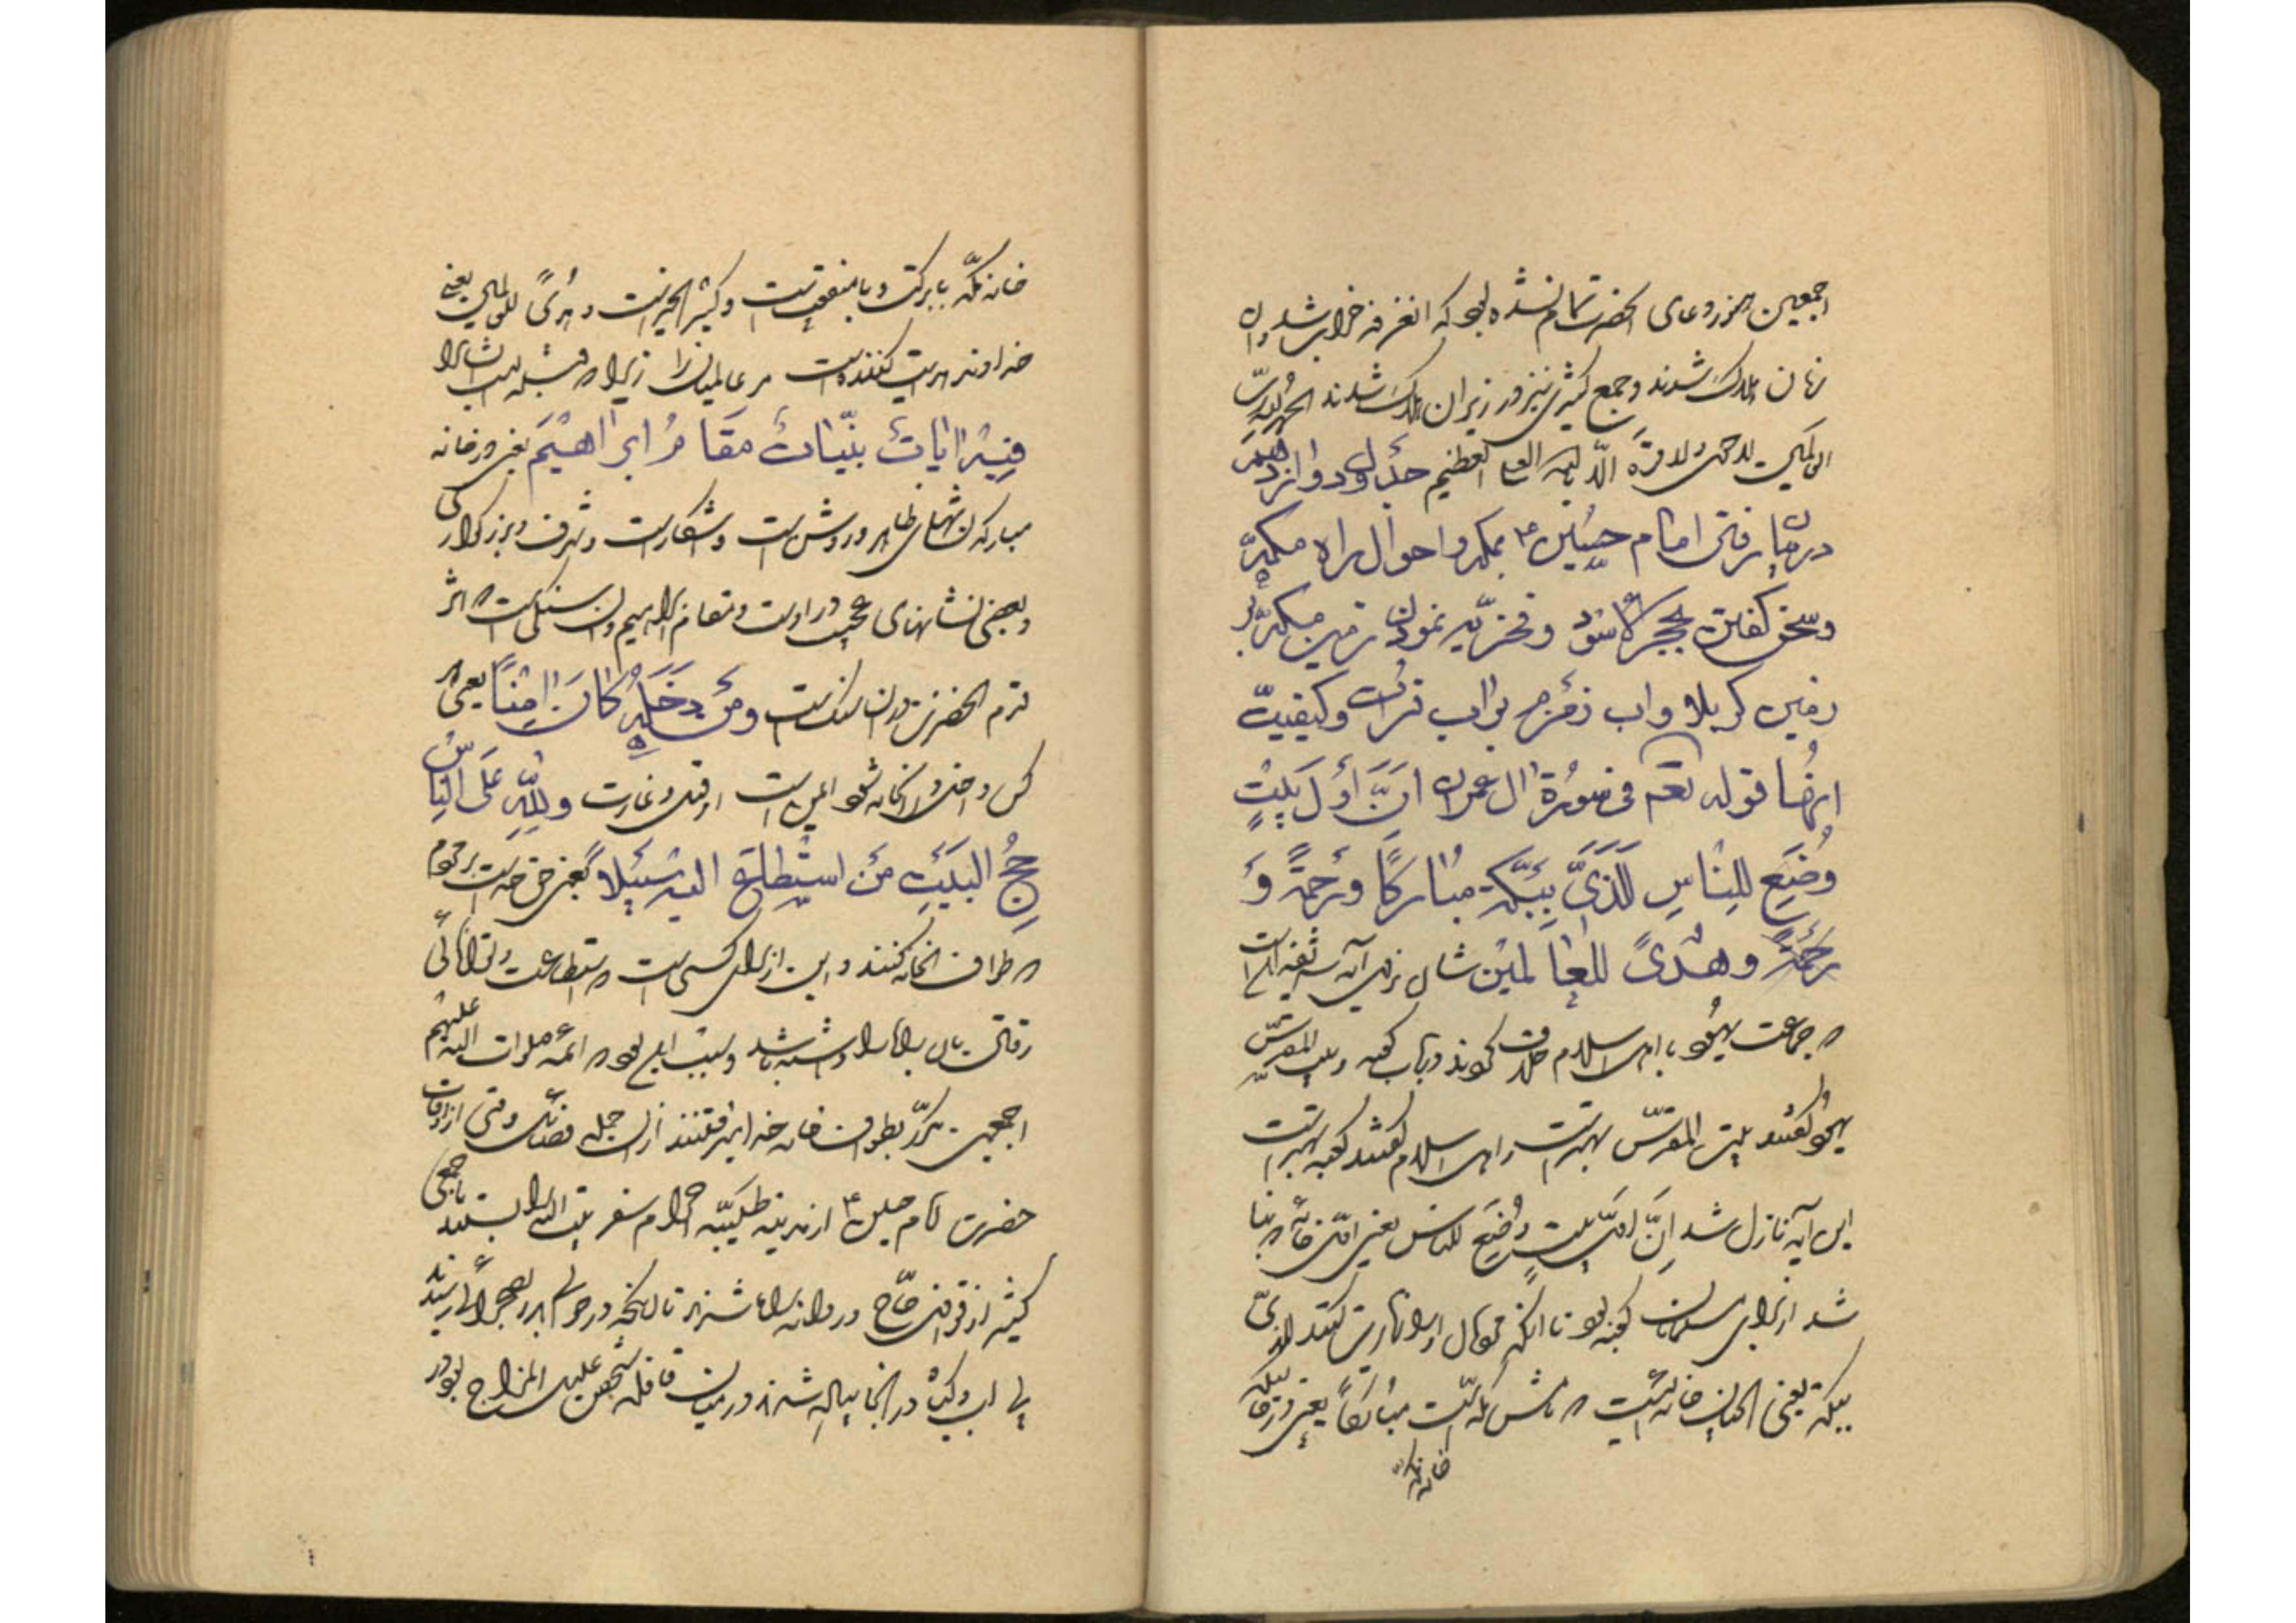 اجمعین هنوز دعای آنحضرت تمام نشده بود که انغرفه خراب شد و آن
زنان هلاک شدند و جمع کثیری نیز در زیر آن هلاک شدند الحمد لله ربّ
العالمین لا حول ولا قوة الّا بالله العلی العظیم جدول دوازدهم
در میان رفتن امام حسین ۴ بمکه و احوال راه مکهّ
و سخن کفتن بحجر الاسود و فخریّه نمودن زمین مکهّ بر
زمین کربلا و اب زمزم بر اب فرات و کیفیتّ
انها قوله تعم فی سورة ال عمران انَّ اَوَّلَ بَیْتٍ
وُضِعَ لِلنّاسِ لَلَّذیّ بِبَکَّة مبُارَکًا ورَحمةً وَ
وهُدیً للعالمین شان نزول آیه شریفه آنست
جماعت یهود با اهل اسلام خلاف کردند در باب کعبه و بیت المقدسّ
یهود کفتند بیت المقدسّ بهتر است و اهل اسلام کفتند کعبه بهتر است
این آیه نازل شد اِنَّ اوّل بیتٍ وُضِعَ للناس یعنی اوّل خانه که بنا
شد از برای مسلمانان کعبه بود تا آنکه
ببکة یعنی آنچنان خانه ایست که نامش مکه است مبُارکاً یعنی
خانه مکّه
خانه مکّه بابرکت و بامنفعت است و کثیر الخیر است و هُدیً للعالمین یعنی
خداوند هدایت کننده است مر عالمیان را زیرا که قبله است ایشانرا
فیهِ ایاتٌ بَیّناتٌ مَقامُ ابراهیْمَ یعنی در خانه
مبارکه نشانهای ظاهر و روشن است و اشکار است و شرف و بزرکواری
و بعضی نشانهای عجیب در اوست و مقام ابراهیم و آن سنکی است که اثر
قدم آنحضرت در آن سنک است ومَنْ دَخَلَهُ کانَ امِنًا یعنی هر
کس داخل آنخانه شود ایمن است از قتل و غارت ولِلّهِ عَلَی النّاسِ
حِجُّ البَیتِ مَنِ اسْتَطاعَ الیه سَبیلاً یعنی حق خداست بر مردم
که طواف آنخانه کنند و این از برای کسی است که استطاعت و توانائی
رفتن بان راه را داشته باشد و سبب این بود که ائمه صلوات الله علیهم
اجمعین مکرّر بطواف خانه خدا میرفتند از آن جمله وقتی از اوقات
حضرت امام حسین ۴ از مدینه طیبّه احرام سفر بیت الله را بستند با جمعی
کثیر از قوافل حاّج و روانه راه شدند تا انکه در حوالی بدر بصحرائی رسیدند
بی اب و کیاه در انجا پیاده شدند در میان قافله شخصی علیل المزاج بود و